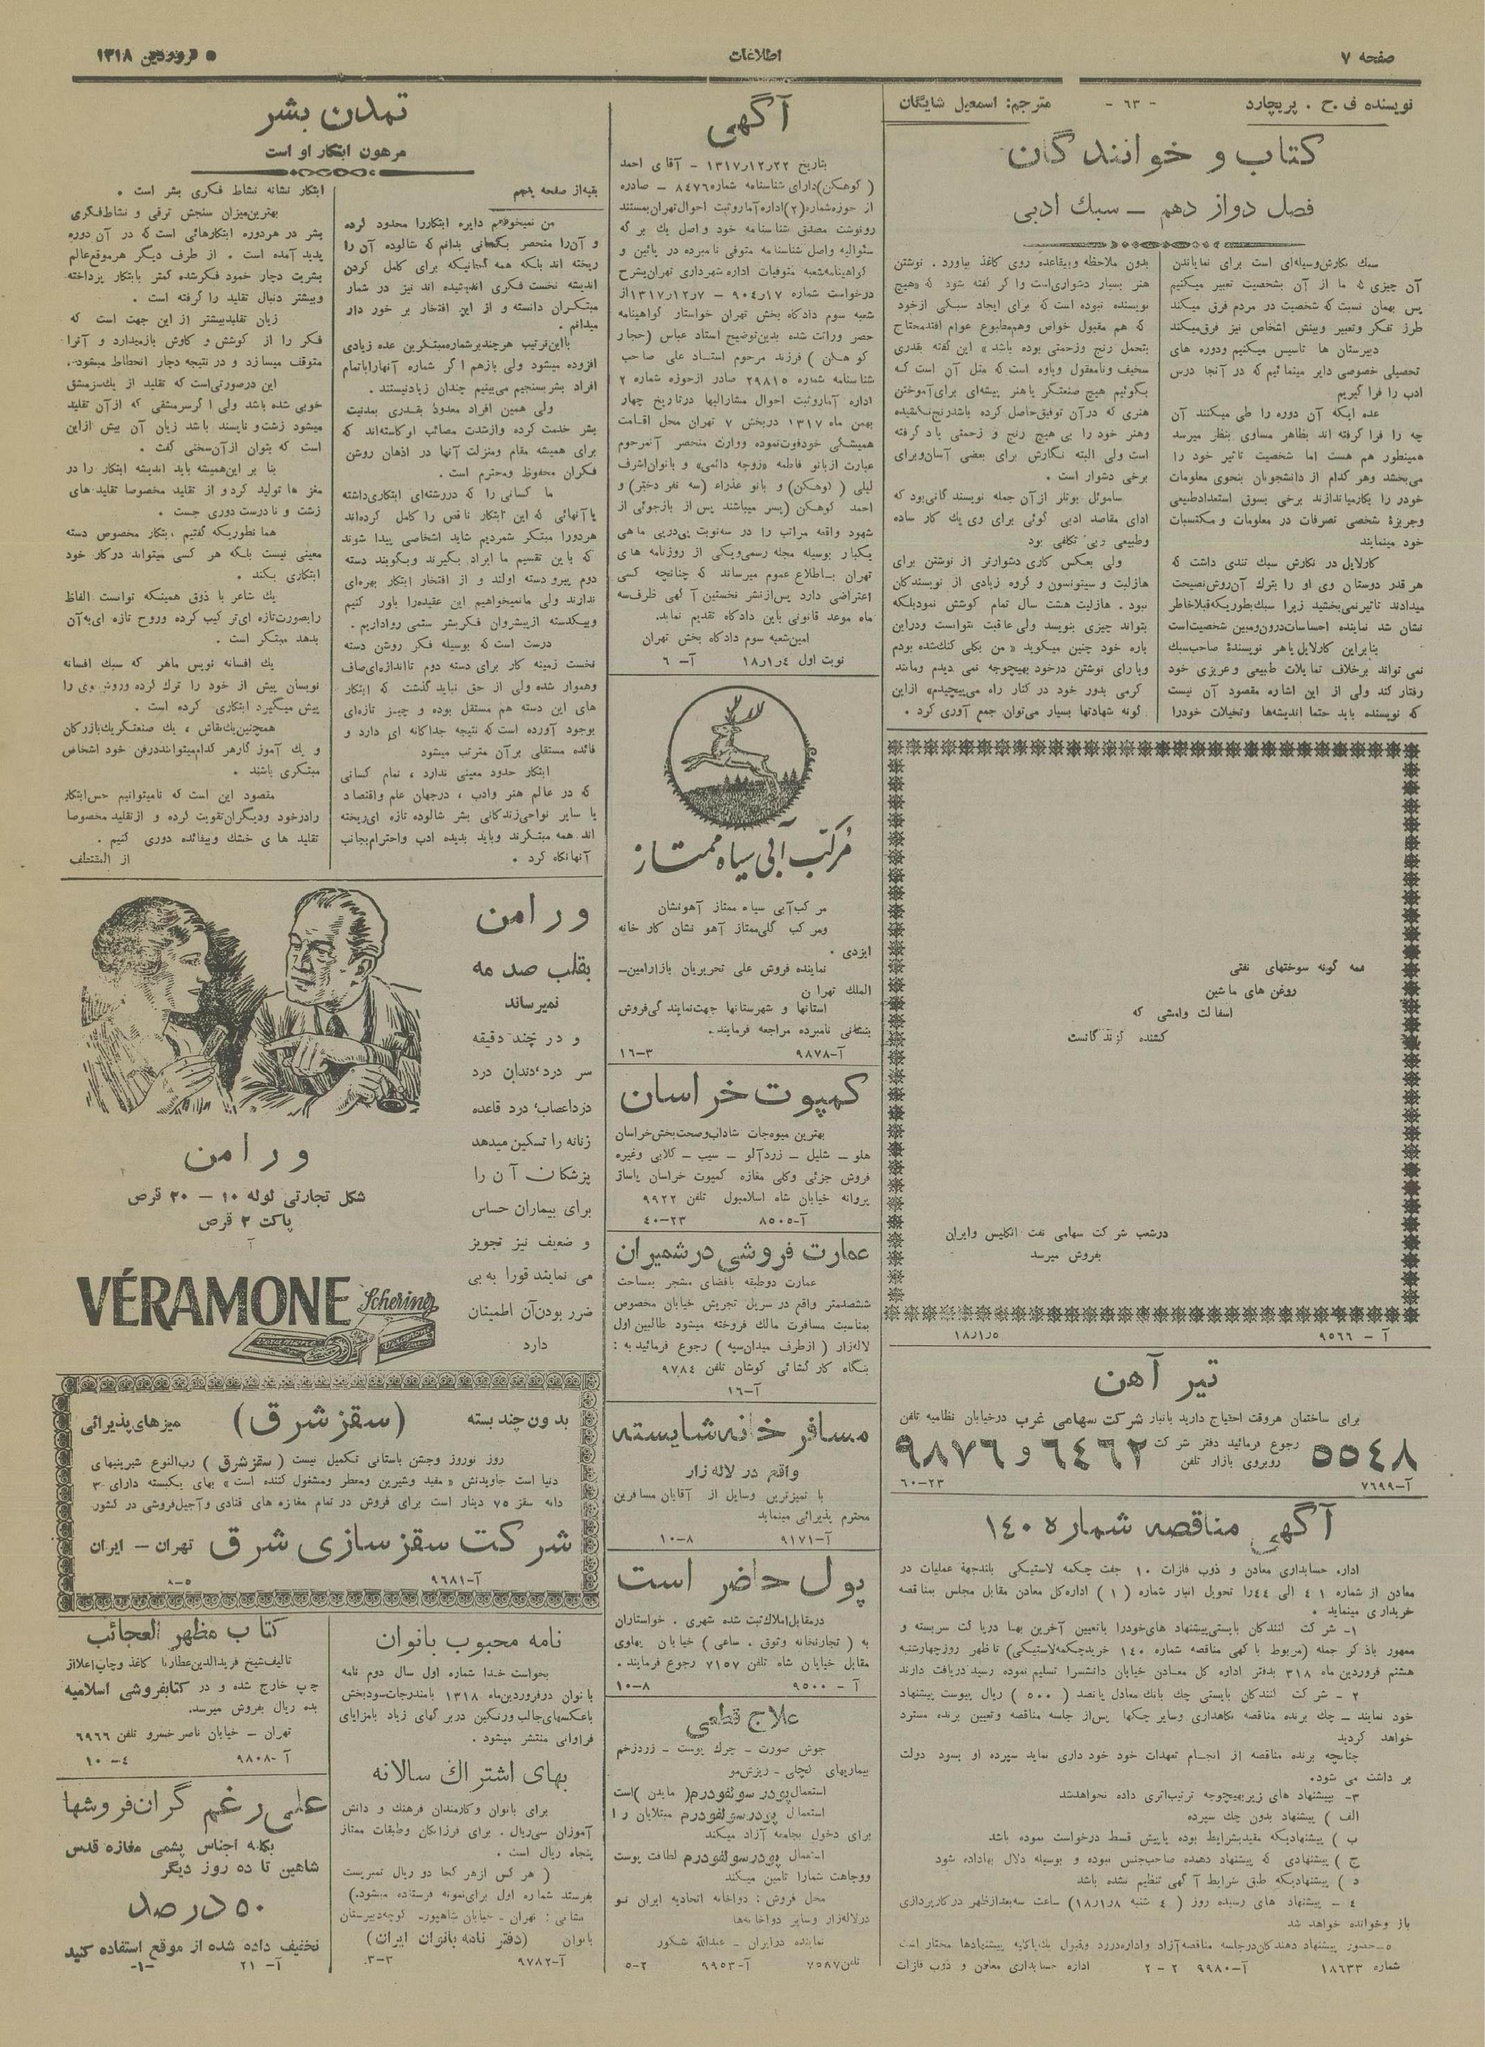 صفحه ۷
اطلاعات
۵ فروردین ۱۳۱۸
نویسنده ف . ح . پریچارد
- ۶۳ -
مترجم: اسمعیل شایگان
کتاب و خوانندگان
فصل دوازدهم ــ سبك ادبی
سبك نگارش وسیله‌ای است برای نمایاندن
آن چیزی که ما از آن بشخصیت تعبیر میکنیم
پس بهمان نسبت که شخصیت در مردم فرق میکند
طرز تفکر وتعبیر وبینش اشخاص نیز فرق میکند
دبیرستان ها تاسیس میکنیم ودوره های
تحصیلی خصوصی دایر مینمائیم که در آنجا درس
ادب را فرا گیریم
عده ایکه آن دوره را طی میکنند آن
چه را فرا گرفته اند بظاهر مساوی بنظر میرسد
همینطور هم هست اما شخصیت تاثیر خود را
می‌بخشد وهر کدام از دانشجویان بنحوی معلومات
خودرا بکارمیاندازند برخی بسوق استعدادطبیعی
وغریزهٔ شخصی تصرفات در معلومات و مکتسبات
خود مینمایند
کارلایل در نگارش سبك تندی داشت که
هرقدر دوستان وی او را بترك آن‌روش نصیحت
میدادند تاثیر نمی‌بخشید زیرا سبك بطوریکه قبلا خاطر
نشان شد نماینده احساسات درون ومبین شخصیت است
بنابراین کارلایل یا هر نویسندهٔ صاحب سبك
نمی تواند برخلاف تمایلات طبیعی و غریزی خود
رفتار کند ولی از این اشاره مقصود آن نیست
که نویسنده باید حتما اندیشه‌ها وتخیلات خودرا
بدون ملاحظه وبیقاعده روی کاغذ بیاورد . نوشتن
هنر بسیار دشواری‌است واگر گفته شود که «هیچ
نویسنده نبوده است که برای ایجاد سبکی ازخود
که هم مقبول خواص وهم مطبوع عوام افتد محتاج
بتحمل رنج وزحمتی بوده باشد» این گفته بقدری
سخیف ونامعقول ویاوه است که مثل آن است که
بگوئیم هیچ صنعتگر یا هنر پیشه‌ای برای آموختن
هنری که در آن توفیق حاصل کرده باشد رنج نکشیده
وهنر خود را بی هیچ رنج و زحمتی یاد گرفته
است ولی البته نگارش برای بعضی آسان وبرای
برخی دشوار است .
ساموئل بوتلر از آن جمله نویسندگانی بود که
ادای مقاصد ادبی گوئی برای وی یك کار ساده
وطبیعی وبی تکلفی بود
ولی بعکس کاری دشوارتر از نوشتن برای
هازلیت و ستیونسون و گروه زیادی از نویسندگان
نبود . هازلیت هشت سال تمام کوشش نمود بلکه
بتواند چیزی بنویسد ولی عاقبت نتوانست ودراین
باره خود چنین میگوید « من بکلی گنك شده بودم
ویارای نوشتن درخود بهیچوجه نمی دیدم ومانند
کرمی بدور خود در کنار راه می‌پیچیدم» ازاین
گونه شهادتها بسیار می‌توان جمع آوری کرد .
همه گونه سوختهای نفتی
روغن های ماشین
اسفالت وامشی که
کشنده گزندگانست
درشعب شرکت سهامی نفت انگلیس وایران
بفروش میرسد
آ - ۹۵۶۶
۱۸ر۱ر۵
تیر آهن
برای ساختمان هروقت احتیاج دارید بانبار شرکت سهامی غرب درخیابان نظامیه تلفن
۵۵۴۸ رجوع فرمائید دفتر شرکت روبروی بازار تلفن ۶۴۶۲ و ۹۸۷۶
آ-۷۶۹۹
۶۰-۲۳
آگهی مناقصه شماره ۱۴۰
اداره حسابداری معادن و ذوب فلزات ۱۰ جفت چکمه لاستیکی بلند جهة عملیات در
معادن از شماره ۴۱ الی ۴۴ را تحویل انبار شماره ( ۱ ) اداره کل معادن مقابل مجلس بمناقصه
خریداری مینماید .
۱- شرکت کنندگان بایستی پیشنهاد های خودرا باتعیین آخرین بها در پاکت سربسته و
ممهور باذکر جمله (مربوط بآگهی مناقصه شماره ۱۴۰ خرید چکمه لاستیکی) تا ظهر روزچهارشنبه
هشتم فروردین ماه ۳۱۸ بدفتر اداره کل معادن خیابان دانشسرا تسلیم نموده رسید دریافت دارند
۲ - شرکت کنندگان بایستی چك بانك معادل پانصد ( ۵۰۰ ) ریال پیوست پیشنهاد
خود نمایند - چك برنده مناقصه نگاهداری وسایر چکها پس از جلسه مناقصه وتعیین برنده مسترد
خواهد گردید
چنانچه برنده مناقصه از انجام تعهدات خود خودداری نماید سپرده او بسود دولت
برداشت می شود.
۳- بپیشنهاد های زیر بهیچوجه ترتیب اثری داده نخواهد شد
الف ) پیشنهاد بدون چك سپرده
ب ) پیشنهادیکه مقید بشرایط بوده یا پیش قسط درخواست نموده باشد
ج ) پیشنهادی که پیشنهاد دهنده صاحب جنس نبوده و بوسیله دلال بها داده شود
د ) پیشنهادیکه طبق شرایط آگهی تنظیم نشده باشد
۴ - پیشنهاد های رسیده روز ( ۴ شنبه ۱۸ر۱ر۸) ساعت سه بعدازظهر در کارپردازی
باز وخوانده خواهد شد
۵-حضور پیشنهاد دهندگان در جلسه مناقصه آزاد واداره در رد وقبول یك یا کلیه پیشنهادها مختار است
شماره ۱۸۶۳۳
آ-۹۹۸۰
۲-۲
اداره حسابداری معادن و ذوب فلزات
آگهی
بتاریخ ۲۲ر۱۲ر۱۳۱۷ - آقای احمد
(کوهکن) دارای شناسنامه شماره ۸۴۷۶ - صادره
از حوزه شماره (۲) اداره آمار وثبت احوال تهران بمستند
رونوشت مصدق شناسنامه خود واصل یك برگه
سئوالیه واصل شناسنامه متوفی نامبرده در پائین و
گواهینامه شعبه متوفیات اداره شهرداری تهران بشرح
درخواست شماره ۹۰۴۱۷-۷ر۱۲ر۱۳۱۷ از
شعبه سوم دادگاه بخش تهران خواستار گواهینامه
حصر وراثت شده بدین توضیح استاد عباس (حجار
کوهکن ) فرزند مرحوم استاد علی صاحب
شناسنامه شماره ۲۹۸۱۵ صادر از حوزه شماره ۲
اداره آمار وثبت احوال مشارالیها در تاریخ چهار
بهمن ماه ۱۳۱۷ در بخش ۷ تهران محل اقامت
همیشگی خود فوت نموده ووراث منحصر آنمرحوم
عبارت از بانو فاطمه «زوجه دائمی» و بانوان اشرف
لیلی ( کوهکن) و بانو عذراء (سه نفر دختر) و
احمد کوهکن (پسر میباشند پس از بازجوئی از
شهود واقعه مراتب را در سه نوبت پی درپی ماهی
یکبار بوسیله مجله رسمی ویکی از روزنامه های
تهران باطلاع عموم میرساند که چنانچه کسی
اعتراضی دارد پس از نشر نخستین آگهی ظرف سه
ماه موعد قانونی باین دادگاه تقدیم نماید.
امین شعبه سوم دادگاه بخش تهران
نوبت اول ۴ر۱ر۱۸
آ- ۶
مرکب آبی سیاه ممتاز
مرکب آبی سیاه ممتاز آهو نشان
ومرکب گلی ممتاز آهو نشان کارخانه
ایزدی .
نماینده فروش علی تحریریان بازار امین-
الملك تهران
استانها و شهرستانها جهت نمایندگی فروش
بنشانی نامبرده مراجعه فرمایند.
آ-۹۸۷۸
۱۶-۳
کمپوت خراسان
بهترین میوه جات شاداب وصحت بخش خراسان
هلو - شلیل - زردآلو - سیب - گلابی وغیره
فروش جزئی وکلی مغازه کمپوت خراسان پاساژ
پروانه خیابان شاه اسلامبول تلفن ۹۹۲۲
آ-۸۵۰۵
۴۰-۲۳
عمارت فروشی درشمیران
عمارت دوطبقه بافضای مشجر بمساحت
ششصدمتر واقع در سرپل تجریش خیابان مخصوص
بمناسبت مسافرت مالك فروخته میشود طالبین اول
لاله‌زار ( ازطرف میدان سپه ) رجوع فرمائید به :
بنگاه کارگشائی کوشان تلفن ۹۷۸۴
آ-۱۶
مسافرخانه شایسته
واقع در لاله زار
با تمیزترین وسایل از آقایان مسافرین
محترم پذیرائی مینماید
آ-۹۱۷۱
۱۰-۸
پول حاضر است
درمقابل املاك ثبت شده شهری . خواستاران
به ( تجارتخانه وثوق . ساعی ) خیابان پهلوی
مقابل خیابان شاه تلفن ۷۱۵۷ رجوع فرمایند.
آ - ۹۵۰۰
۱۰-۸
علاج قطعی
جوش صورت - چرك پوست - زردزخم
بیماریهای کچلی - ریزش مو
استعمال پودر سولفودرم( مایدن )است
استعمال پودر سولفودرم مبتلایان را
برای دخول بجامعه آزاد میکند
استعمال پودر سولفودرم لطافت پوست
ووجاهت شمارا تامین میکند
محل فروش : دواخانه اتحادیه ایران نو
درلاله زار وسایر دواخانه ها
نماینده درایران - عبدالله شکور
تلفن ۷۵۸۷
آ-۹۹۵۳
۵-۲
تمدن بشر
مرهون ابتکار او است
بقیه از صفحه پنجم
من نمیخواهم دایره ابتکاررا محدود کرده
و آن را منحصر بکسانی بدانم که شالوده آن را
ریخته اند بلکه همه کسانیکه برای کامل کردن
اندیشه نخست فکری اندیشیده اند نیز در شمار
مبتکران دانسته و از این افتخار برخوردار
میدانم .
بااین ترتیب هرچند بر شماره مبتکرین عده زیادی
افزوده میشود ولی بازهم اگر شماره آنهارا باتمام
افراد بشر بسنجیم می‌بینیم چندان زیاد نیستند .
ولی همین افراد معدود بقدری بمدنیت
بشر خدمت کرده وازشدت مصائب او کاسته‌اند که
برای همیشه مقام ومنزلت آنها در اذهان روشن
فکران محفوظ ومحترم است .
ما کسانی را که دررشته‌ای ابتکاری داشته
یا آنهائی که این ابتکار ناقص را کامل کرده‌اند
هردورا مبتکر شمردیم شاید اشخاصی پیدا شوند
که باین تقسیم ما ایراد بگیرند وبگویند دسته
دوم پیرو دسته اولند و از افتخار ابتکار بهره‌ای
ندارند ولی ما نمیخواهیم این عقیده‌را باور کنیم
وبیکدسته ازپیشروان فکر بشر ستمی رواداریم .
درست است که بوسیله فکر روشن دسته
نخست زمینه کار برای دسته دوم تا اندازه‌ای صاف
وهموار شده ولی از حق نباید گذشت که ابتکار
های این دسته هم مستقل بوده و چیز تازه‌ای
بوجود آورده است که نتیجه جداگانه ای دارد و
فائده مستقلی بر آن مترتب میشود
ابتکار حدود معینی ندارد ، تمام کسانی
که در عالم هنر وادب ، درجهان علم واقتصاد
یا سایر نواحی زندگانی بشر شالوده تازه ای ریخته
اند همه مبتکرند وباید بدیده ادب واحترام بجانب
آنها نگاه کرد .
ابتکار نشانه نشاط فکری بشر است .
بهترین میزان سنجش ترقی و نشاط فکری
بشر در هردوره ابتکارهائی است که در آن دوره
پدید آمده است . از طرف دیگر هرموقع عالم
بشریت دچار خمود فکر شده کمتر بابتکار پرداخته
وبیشتر دنبال تقلید را گرفته است .
زیان تقلید بیشتر از این جهت است که
فکر را از کوشش و کاوش بازمیدارد و آنرا
متوقف میسازد و در نتیجه دچار انحطاط میشود.
این درصورتی است که تقلید از یك سرمشق
خوبی شده باشد ولی اگر سرمشقی که از آن تقلید
میشود زشت و ناپسند باشد زیان آن بیش ازاین
است که بتوان از آن سخنی گفت .
بنا بر این همیشه باید اندیشه ابتکار را در
مغز ها تولید کرد و از تقلید مخصوصا تقلید های
زشت و نادرست دوری جست .
همانطوریکه گفتیم ابتکار مخصوص دسته
معینی نیست بلکه هر کسی میتواند در کار خود
ابتکاری بکند .
یك شاعر با ذوق همینکه توانست الفاظ
رابصورت تازه ای ترکیب کرده وروح تازه ای به آن
بدهد مبتکر است .
یك افسانه نویس ماهر که سبك افسانه
نویسان پیش از خود را ترك کرده وروش نوی را
پیش میگیرد ابتکاری کرده است .
همچنین یك نقاش ، یك صنعتگر یك بازرگان
و یك آموزگار هر کدام میتوانند در فن خود اشخاص
مبتکری باشند .
مقصود این است که تا میتوانیم حس ابتکار
رادر خود ودیگران تقویت کرده و از تقلید مخصوصا
تقلید های خشك وبیفائده دوری کنیم .
از المقتطف
ورامن
بقلب صدمه
نمیرساند
و در چند دقیقه
سردرد، دندان درد
درد اعصاب، درد قاعده
زنانه را تسکین میدهد
پزشکان آن را
برای بیماران حساس
و ضعیف نیز تجویز
می نمایند فورا به بی
ضرر بودن آن اطمینان
دارد
ورامن
شکل تجارتی لوله ۱۰ - ۲۰ قرص
پاکت ۲ قرص
آ
VÉRAMONE
Schering
بدون چند بسته
(سقز شرق)
میزهای پذیرائی
روز نوروز وجشن باستانی تکمیل نیست (سقز شرق) رب النوع شیرینیهای
دنیا است جاویدنش «مفید وشیرین ومعطر ومشغول کننده است» بهای یکبسته دارای ۳
دانه سقز ۷۵ دینار است برای فروش در تمام مغازه های قنادی وآجیل فروشی در کشور
شرکت سقزسازی شرق تهران - ایران
آ-۹۶۸۱
۸-۵
نامه محبوب بانوان
بخواست خدا شماره اول سال دوم نامه
بانوان در فروردین ماه ۱۳۱۸ بامندرجات سودبخش
باعکسهای جالب ورنگین در برگهای زیاد بامزایای
فراوانی منتشر میشود .
بهای اشتراك سالانه
برای بانوان و کارمندان فرهنگ و دانش
آموزان سی ریال . برای فرزانگان وطبقات ممتاز
پنجاه ریال است .
( هر کس از هر کجا دو ریال تمبر پست
بفرستد شماره اول برای نمونه فرستاده میشود.)
نشانی : تهران - خیابان شاهپور - کوچه دبیرستان
بانوان (دفتر نامه بانوان ایران)
آ-۹۷۸۲
۳-۳
کتاب مظهر العجائب
تالیف شیخ فریدالدین عطار با کاغذ وچاپ اعلا از
چاپ خارج شده و در کتابفروشی اسلامیه
بده ریال بفروش میرسد.
تهران - خیابان ناصر خسرو تلفن ۶۹۶۶
آ-۹۸۰۸
۱۰-۴
علی رغم گران‌فروشها
بکلیه اجناس پشمی مغازه قدس
شاهین تا ده روز دیگر
۵۰ درصد
تخفیف داده شده از موقع استفاده کنید
آ- ۲۱
-۱-